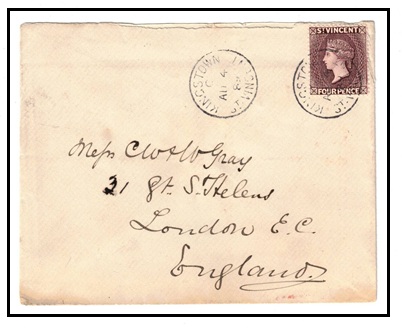 ST VINCENT
FOUR PENCE
KINGSTOWN
ST. VINCENT
C
AU 4
KINGSTOWN
Messrs C W & W Gray
21 Gt. St. Helens
London E.C.
England